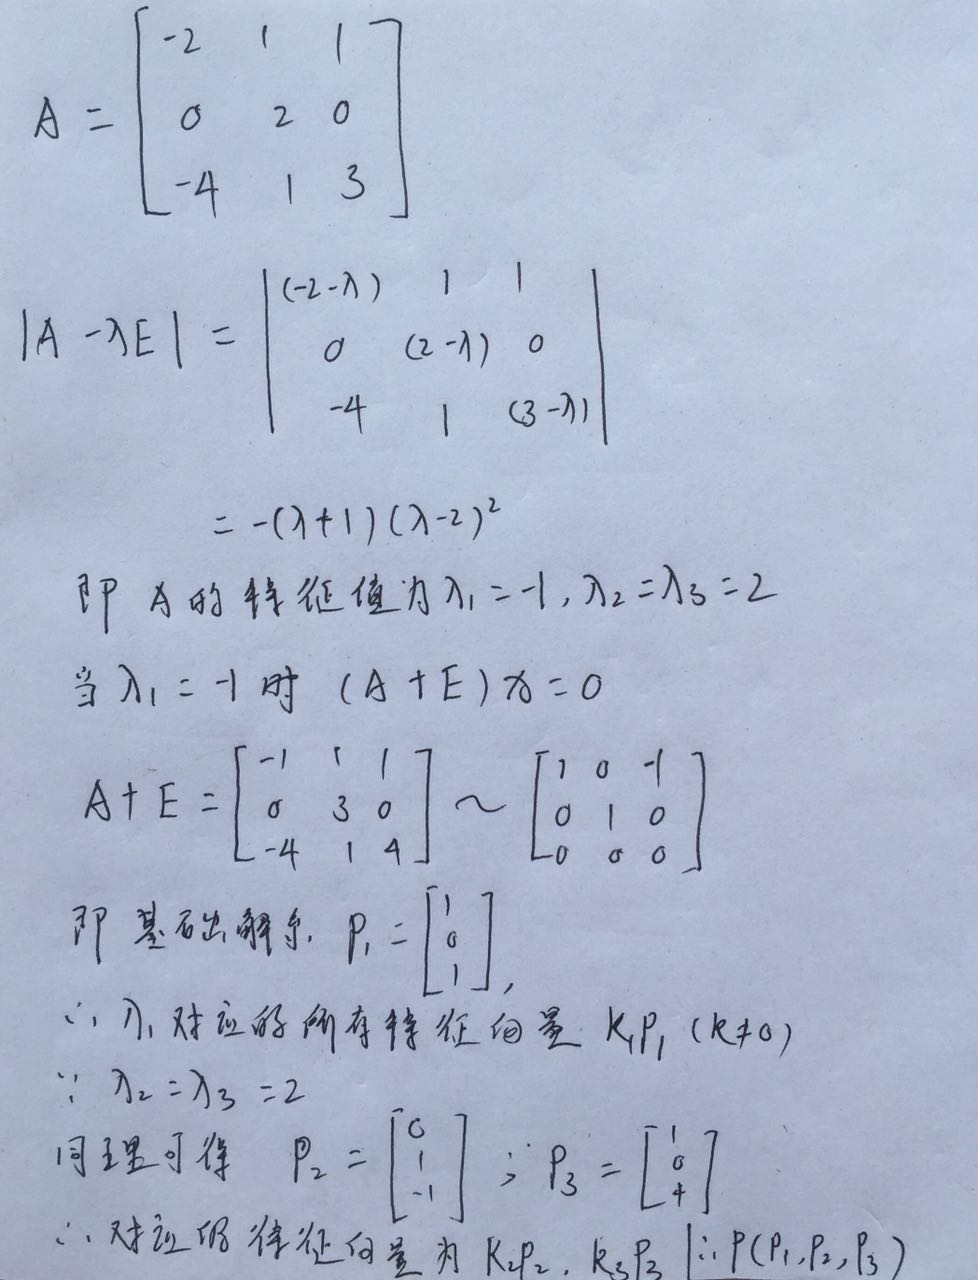 A = [ -2 1 1
0 2 0
-4 1 3 ]
|A - λE| = | (-2-λ) 1 1
0 (2-λ) 0
-4 1 (3-λ) |
= -(λ+1)(λ-2)²
即 A的特征值为λ₁=-1, λ₂=λ₃=2
当λ₁=-1时 (A+E)x=0
A+E = [ -1 1 1
0 3 0
-4 1 4 ] ~ [ 1 0 -1
0 1 0
0 0 0 ]
即基础解系 P₁ = [ 1
0
1 ],
∴ λ₁对应的所有特征向量 K₁P₁ (k≠0)
∵ λ₂=λ₃=2
同理可得 P₂ = [ 0
1
-1 ] ; P₃ = [ 1
0
4 ]
∴ 对应的特征向量为 K₂P₂, k₃P₃ | ∴ P(P₁,P₂,P₃)